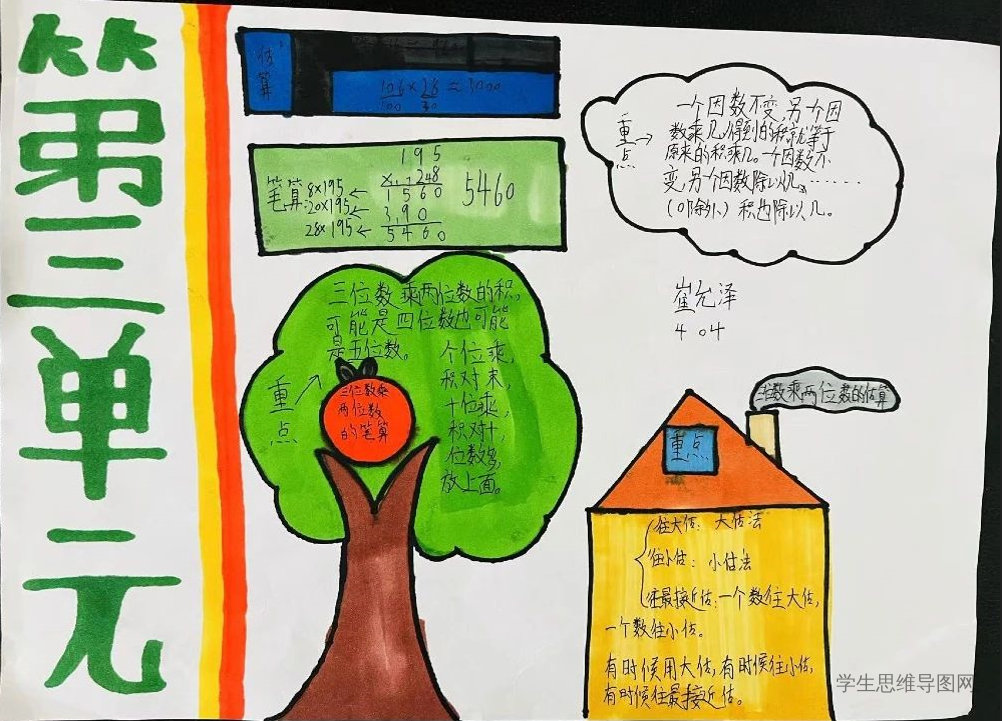 第三单元
估算
106×28≈3000
100 30
笔算
195
×248
8×195← 1560
20×195← 390
28×195← 5460
5460
重点→
一个因数不变,另个因
数乘几,得到的积就等于
原来的积乘几。一个因数不
变,另个因数除以几,……
(0除外)积也除以几。
崔允泽
404
三位数乘两位数的积,
可能是四位数也可能
是五位数。
重点
三位数乘
两位数
的笔算
个位乘,
积对末,
十位乘,
积对十,
位数多,
放上面。
三位数乘两位数的估算
重点
往大估:大估法
往小估:小估法
往最接近估:一个数往大估,
一个数往小估。
有时候用大估,有时候往小估,
有时候往最接近估。
学生思维导图网